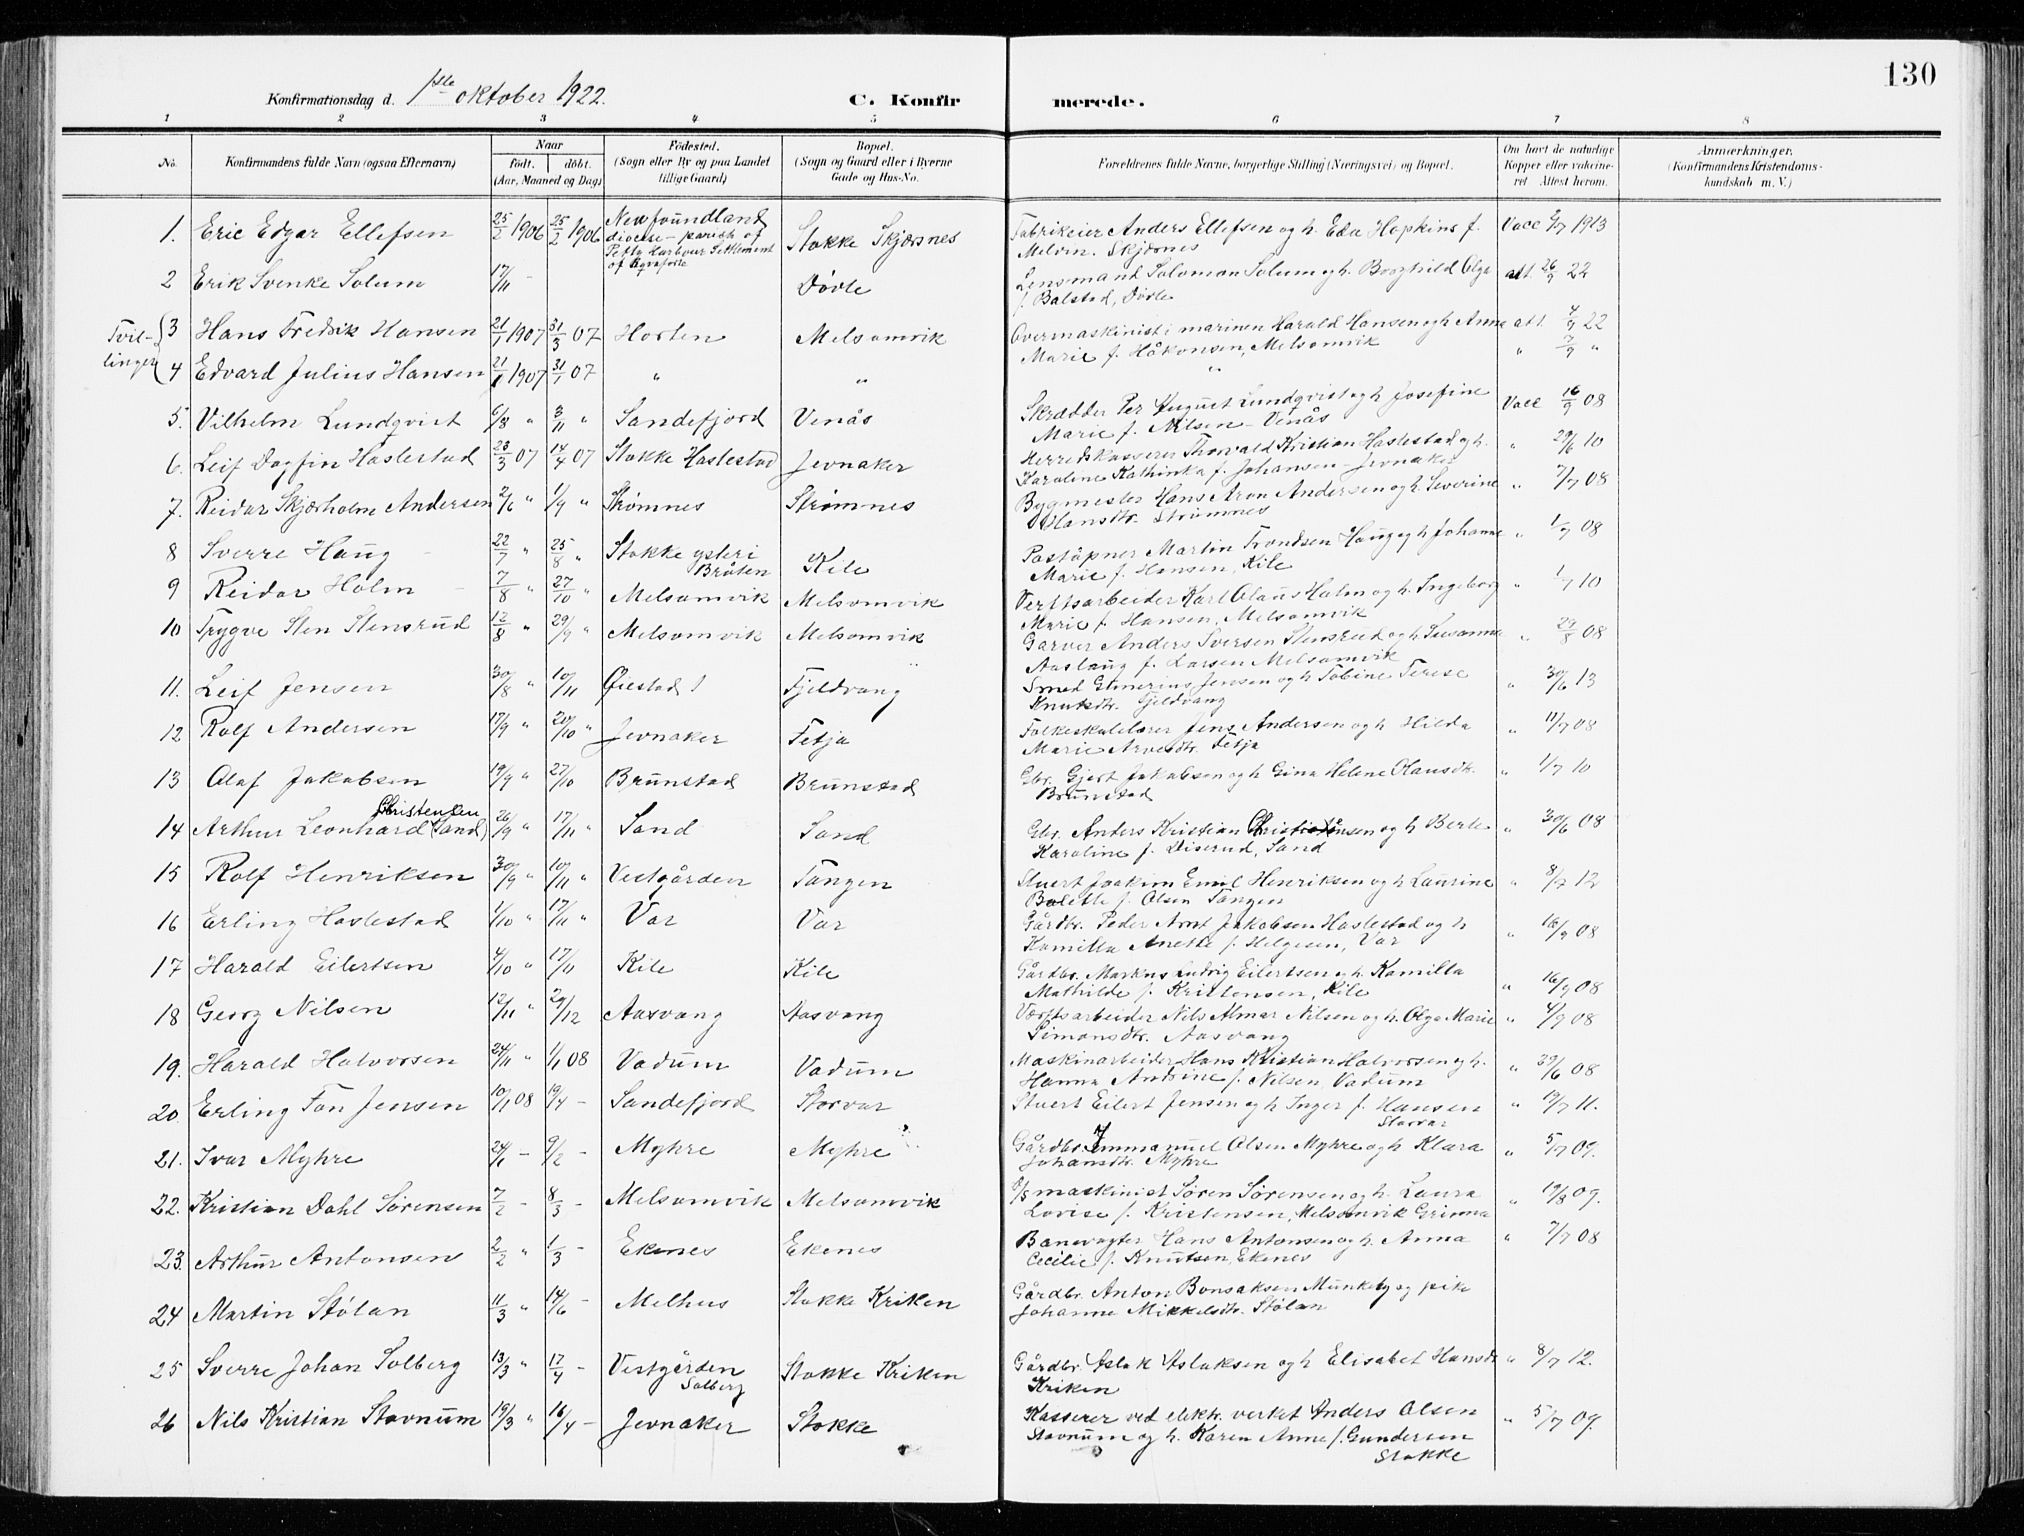 130
Konfirmationsdag d. 1ste oktober 1922.
C. Konfirmerede.
1 2 3 4 5 6 7 8
No. Konfirmandens fulde Navn (ogsaa Efternavn) Naar født. døbt. (Aar, Maaned og Dag) Fødested. (Sogn eller By og paa Landet tillige Gaard) Bopæl. (Sogn og Gaard eller i Byerne Gade og Hus-No. Forældrenes fulde Navne, borgerlige Stilling (Næringsvei) og Bopæl. Om havt de naturlige Kopper eller vakcineret. Attest herom. Anmærkninger. (Konfirmandens Kristendomskundskab m. V.)
1. Eric Edgar Ellefsen 25/2 1906 25/2 1906 Newfoundland diocese - parish of Petty Harbour Settlement of Stokke Skjærsnes Fabrikeier Anders Ellefsen og h. Eda Hopkins f.
Melvin. Skjærsnes Vacc 1913
2 Erik Svenke Solum 17/11 - Døvle Lensmand Salomon Solum og h. Borghild Olga att. 26/9 22
f. Balstad, Døvle
Tvillinger
3 Hans Fredrik Hansen 21/1 1907 31/3 07 Horten Melsomvik Overmaskinist i marinen Harald Hansen og h Anna att. 7/9 22
Marie f. Håkonsen, Melsomvik
4 Edvard Julius Hansen 21/1 1907 31/1 07 " " " " 7/9 "
5. Vilhelm Lundqvist 6/8 " 3/11 " Sandefjord Venås Skrædder Per August Lundqvist og h Josefine Vacc 16/9 08
Marie f. Nilsen - Venås
6. Leif Dagfin Haslestad 23/3 07 14/4 07 Stokke Haslestad Jevnaker Herredskasserer Thorvald Kristian Haslestad og h. " 29/6 10
Karoline Kathinka f. Johansen - Jevnaker
7. Reidar Skjærholm Andersen 2/6 " 1/9 " Strømnes Strømnes Bygmester Hans Aron Andersen og h. Severine " 7/7 08
Hansdtr. Strømnes
8 Sverre Haug 22/7 " 25/8 " Stokke ysteri Bråten Kile Poståpner Martin Trondsen Haug og h Johanne " 1/7 08
Marie f. Hansen, Kile
9 Reidar Holm 7/8 " 27/10 " Melsomvik Melsomvik Verftsarbeider Karl Olaus Holm og h. Ingeborg " 1/7 10
Marie f. Hansen, Melsomvik
10 Trygve Sten Stensrud 12/8 " 29/9 " Melsomvik Melsomvik Garver Anders Iversen Stensrud og h Susanna " 27/8 08
Aaslaug f. Larsen Melsomvik
11. Leif Jensen 30/8 " 10/11 Øiestad Fjeldvang Smed Jensen og h Tobine Terese " 30/6 13
Knutsdtr. Fjeldvang
12 Rolf Andersen 17/9 " 20/10 " Jevnaker Fetja Folkeskolelærer Jens Andersen og h Hilda " 11/7 08
Marie Arvesdtr. Fetja
13 Olaf Jakobsen 19/9 " 27/10 Brunstad Brunstad Gbr. Gjert Jakobsen og h Gina Helene Olausdtr. " 1/7 10
Brunstad
14 Arthur Leonhard Christensen (Sand) 26/9 " 17/11 " Sand Sand Gbr. Anders Kristian Christensen og h Berte " 30/6 08
Karoline f. Diserud, Sand
15 Rolf Henriksen 30/9 " 10/11 " Vestgården Tangen Stuert Joakim Emil Henriksen og h Laurine " 8/7 12
Bolette f. Olsen Tangen
16 Erling Haslestad 1/10 " 17/11 " Var Var Gårdbr. Peder Arnt Jakobsen Haslestad og h " 16/9 08
Kamilla Anette f. Helgesen, Var
17 Harald Eilertsen 4/10 " 17/11 Kile Kile Gårdbr. Markus Ludvig Eilertsen og h Kamilla " 16/9 08
Mathilde f. Kristensen, Kile
18 Georg Nilsen 12/11 " 29/12 Aasvang Aasvang Værftsarbeider Nils Almar Nilsen og h. Olga Marie " 4/9 08
Simonsdtr. Aasvang
19. Harald Halvorsen 24/11 " 1/1 08 Vadum Vadum Maskinarbeider Hans Kristian Halvorsen og h. " 29/6 08
Hanna Andrine f. Nilsen, Vadum
20. Erling Tan Jensen 10/1 08 19/4 - Sandefjord Storvar Stuert Eilert Jensen og h Inger f. Hansen " 19/7 11.
Storvar
21. Ivar Myhre 24/1 - 9/2 - Myhre Myhre Gårdbr. Emmanuel Olsen Myhre og h Klara " 5/7 09.
Johansdtr. Myhre
22. Kristian Dahl Sørensen 7/2 - 8/3 - Melsomvik Melsomvik maskinist Søren Sørensen og h. Laura " 19/8 09.
Lovise f. Kristensen, Melsomvik Grimna
23. Arthur Antonsen 2/2 " 1/3 - Ekenes Ekenes Banevogter Hans Antonsen og h. Anna " 7/7 08
Cecilie f. Knutsen, Ekenes
24 Martin Stølan 11/3 " 14/6 - Melhus Stokke Kriken Gårdbr. Anton Bonsaksen Munkeby og pike
Johanne Mikkelsdtr. Stølan
25 Sverre Johan Solberg 13/3 " 17/4 - Vestgården Solberg Stokke Kriken Gårdbr. Aslak Aslaksen og h Elisabet Hansdtr " 8/7 12.
Kriken
26 Nils Kristian Stavnum 19/3 " 16/4 - Jevnaker Stokke Kasserer ved elektr. verket Anders Olsen " 5/7 09.
Stavnum og h. Karen Anne f. Gundersen
Stokke